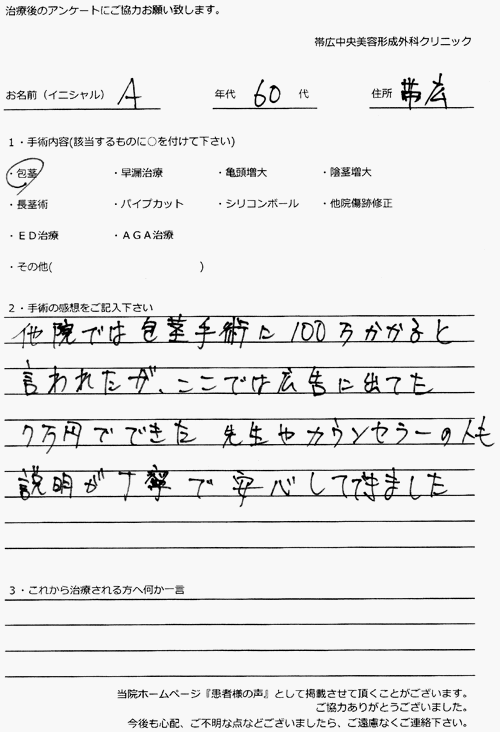 治療後のアンケートにご協力お願い致します。
帯広中央美容形成外科クリニック
お名前（イニシャル） A 年代 60 代 住所 帯広
１・手術内容(該当するものに○を付けて下さい)
・包茎 ・早漏治療 ・亀頭増大 ・陰茎増大
・長茎術 ・パイプカット ・シリコンボール ・他院傷跡修正
・ＥＤ治療 ・ＡＧＡ治療
・その他( )
２・手術の感想をご記入下さい
他院では包茎手術に100万かかると
言われたが、ここでは広告に出てた
7万円でできた 先生やカウンセラーの人も
説明が丁寧で安心してできました
３・これから治療される方へ何か一言
当院ホームページ『患者様の声』として掲載させて頂くことがございます。
ご協力ありがとうございました。
今後も心配、ご不明な点などございましたら、ご遠慮なくご連絡下さい。